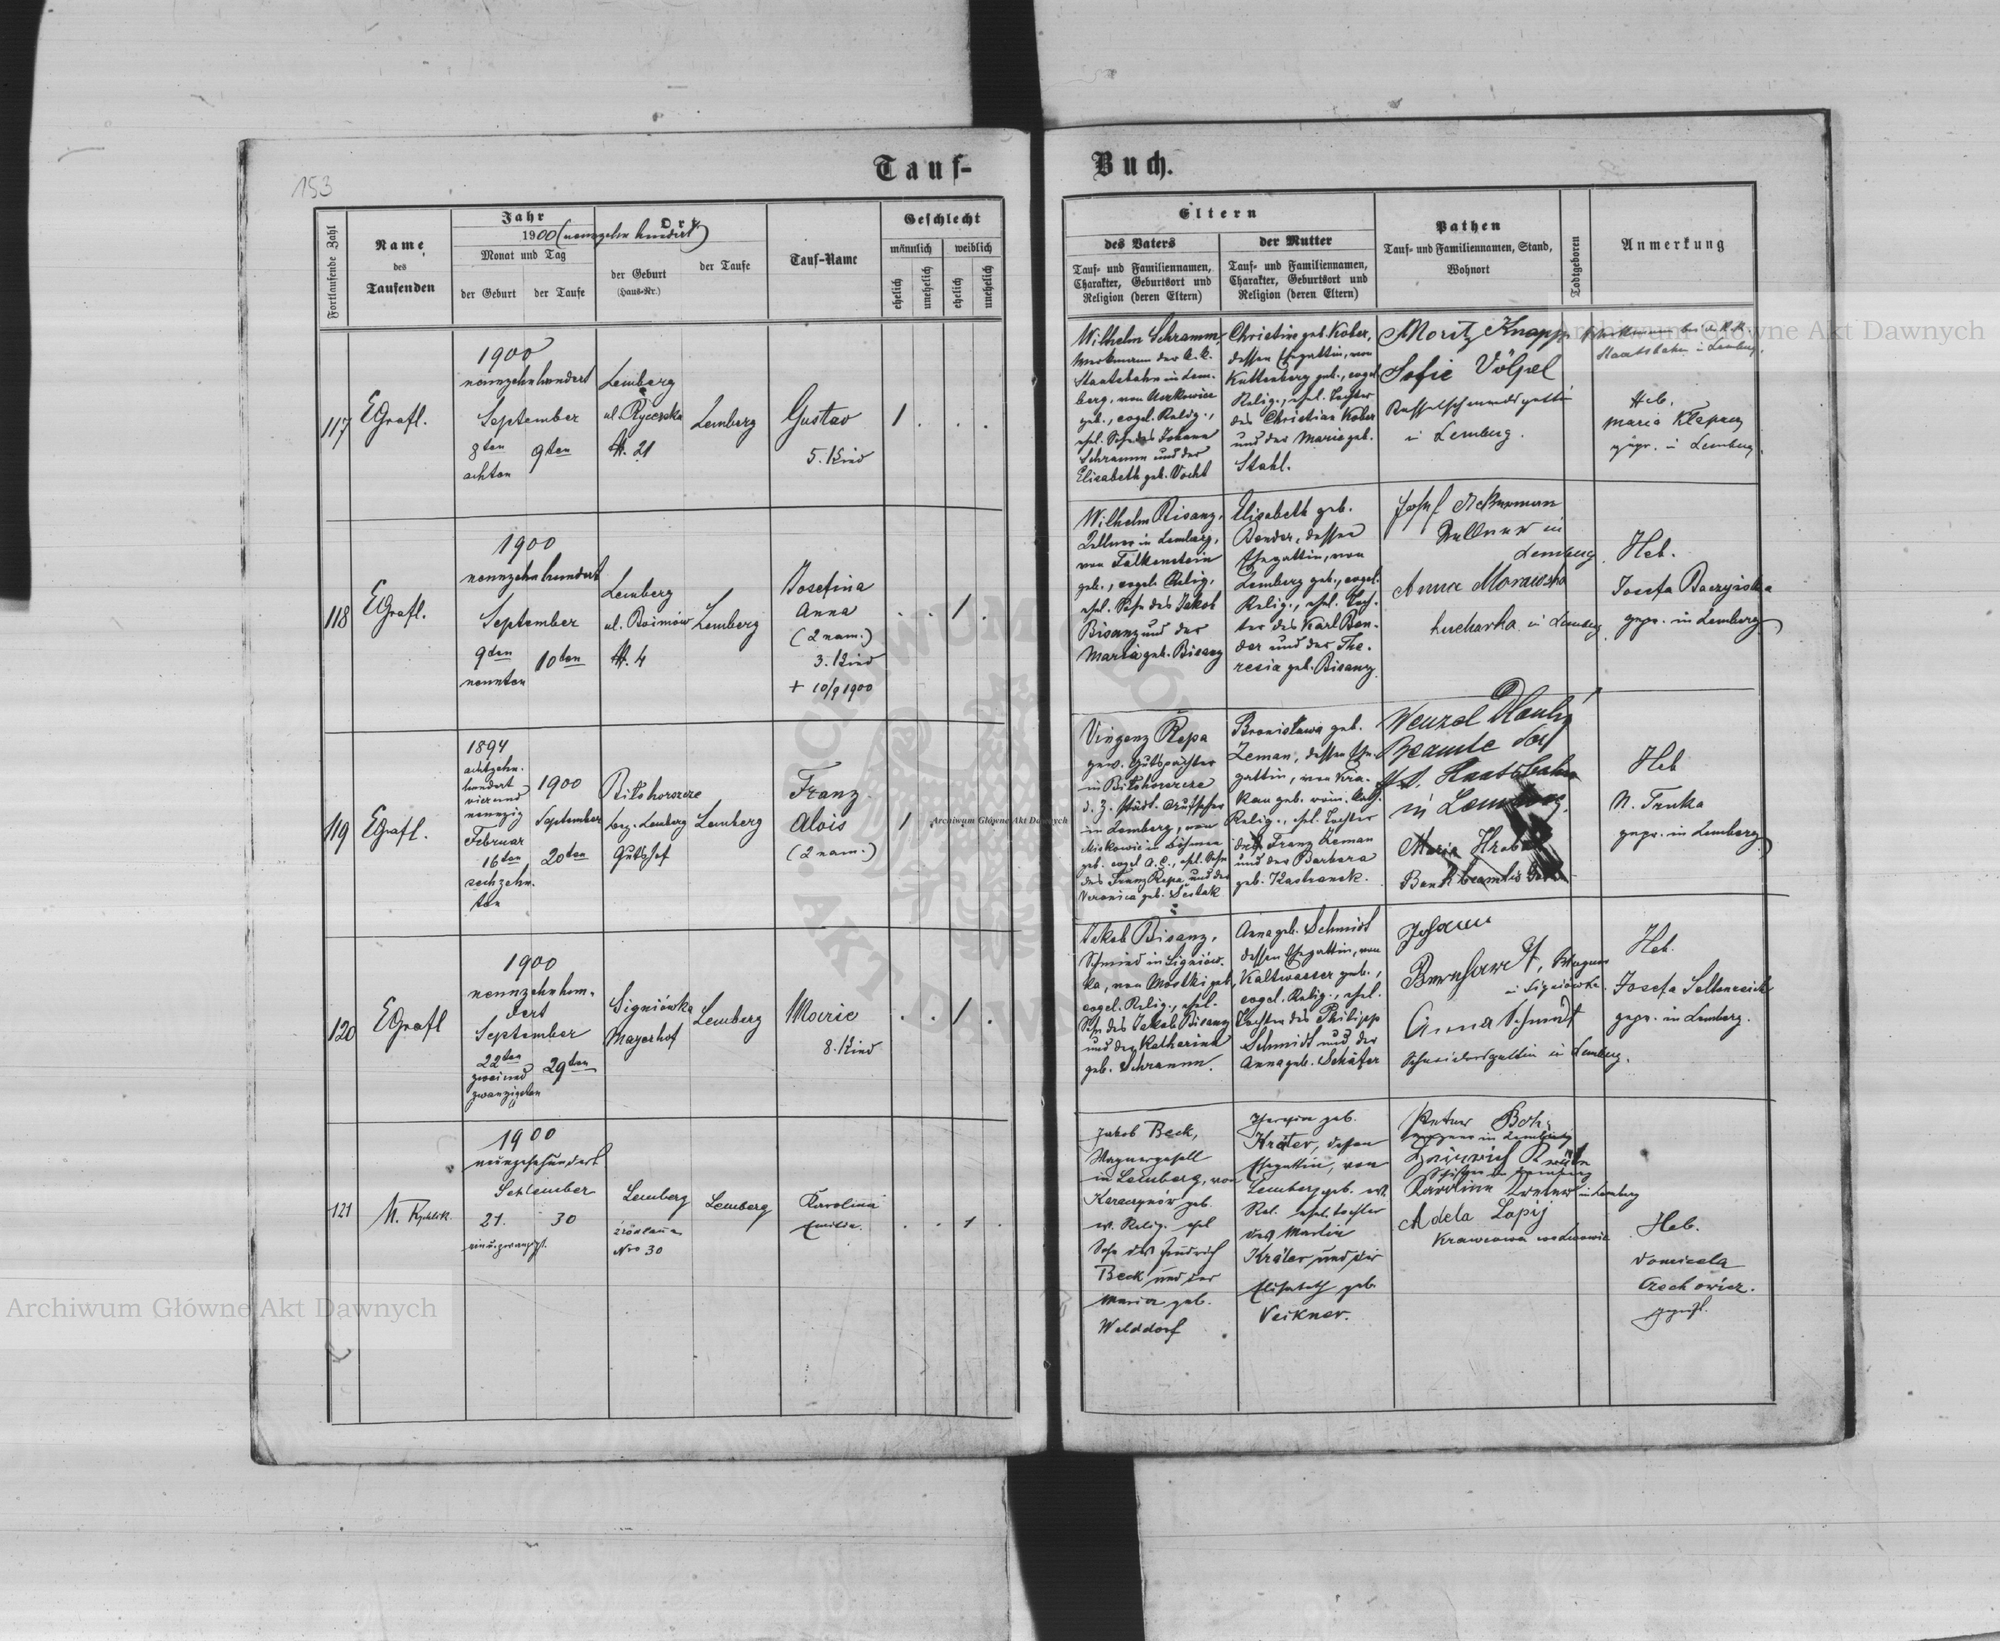 153
Tauf-
Buch.
Fortlaufende Zahl
Name
des
Taufenden
Jahr
1900 (nennzehn hundert)
Monat und Tag
der Geburt
der Taufe
Ort
der Geburt
(Haus-Nr.)
der Taufe
Tauf-Name
Geschlecht
männlich
weiblich
ehelich
unehelich
ehelich
unehelich
Eltern
des Vaters
Tauf- und Familiennamen,
Charakter, Geburtsort und
Religion (deren Eltern)
der Mutter
Tauf- und Familiennamen,
Charakter, Geburtsort und
Religion (deren Eltern)
Pathen
Tauf- und Familiennamen, Stand,
Wohnort
Todtgeboren
Anmerkung
117
EGrafl.
1900
nennzehnhundert
September
8ten
achten
9ten
Lemberg
ul. Rycerska
№. 21
Lemberg
Gustav
5. Kind
1
Wilhelm Schramm
Werkmann der k. k.
Staatsbahn in Lem-
berg, von
geb., evgel. Relig.,
ehel. Sohn des Johann
Schramm und der
Elisabeth geb. Vocht
Christine geb. Kober,
dessen Ehegattin, von
Kuttenberg geb., evgel.
Relig., ehel. Tochter
des Christian Kober
und der Marie geb.
Stahl.
Moritz Knapp
Sofie Völpel
Kesselschmiedsgattin
in Lemberg.
Staatsbahn in Lemberg.
Heb.
Maria Klepacz
gepr. in Lemberg.
118
EGrafl.
1900
nennzehnhundert
September
9ten
nennten
10ten
Lemberg
ul. Boimów
№. 4
Lemberg
Josefina
Anna
(2 nam.)
3. Kind
+ 10/9 1900
1
Wilhelm Bisanz,
Kellner in Lemberg,
von Falkenstein
geb., evgel. Relig.,
ehel. Sohn des Jakob
Bisanz und der
Maria geb. Bisanz
Elisabeth geb.
Bender, dessen
Ehegattin, von
Lemberg geb., evgel.
Relig., ehel. Toch-
ter des Karl Ben-
der und der The-
resia geb. Bisanz.
Josef Ackerman
Kellner in
Lemberg.
Anna Morawska
kucharka in Lemberg
Heb.
Josefa Baczyńska
gepr. in Lemberg
119
EGrafl.
1894
achtzehn-
hundert
vierund
nennzig
Februar
16ten
sechzehn-
ten
1900
September
20ten
Biłohorszcze
bez. Lemberg
Gutshof
Lemberg
Franz
Alois
(2 nam.)
1
Vinzenz Repa
gew. Gutspächter
in Biłohorszcze
d. Z. städt. Aufseher
in Lemberg, von
in Böhmen
geb. evgel A.C., ehel. Sohn
des Franz Repa und der
Veronica geb. Šestak
Bronisława geb.
Zeman, dessen Ehe-
gattin, von Kra-
kau geb. röm. kath.
Relig., ehel. Tochter
des Franz Zeman
und der Barbara
geb. Kastranek.
Wenzel Dlouhý
Beamte der
Staatsbahn
in Lemberg.
Maria
Heb
N. Trnka
gepr. in Lemberg
120
EGrafl
1900
nennzehnhun-
dert
September
22ten
zweiund
zwanzigsten
29ten
Signiówka
Mayerhof
Lemberg
Marie
8. Kind
1
Jakob Bisanz,
Schmied in Signiów-
ka, von Mostki geb,
evgel. Relig., ehel.
Sohn des Jakob Bisanz
und der Katherina
geb. Schramm.
Anna geb. Schmidt
dessen Ehegattin, von
Kaltwasser geb.,
evgel. Relig., ehel.
Tochter des Philipp
Schmidt und der
Anna geb. Schäfer
Johann
Bernhardt, Wagner
in Signiówka.
Anna Schmidt
Schmiedsgattin in Lemberg.
Heb.
Josefa
gepr. in Lemberg.
121
1900
neunzehnhundert
September
21.
30
Lemberg
Nro 30
Lemberg
Karolina
Emilie.
1
Jakob Beck,
Wagnergesell
in Lemberg, von
geb.
ev. Relig. ehel
Sohn des Heinrich
Beck und der
Maria geb.
Welddorf
geb.
Kräter, dessen
Ehegattin, von
Lemberg geb. ev.
Rel. ehel. Tochter
des Martin
Kräter und der
Elisabeth geb.
Veikner.
in Lemberg
Heinrich
Karoline
in Lemberg
Adela Łapij
Heb.
Domicela
Czechowicz.
Archiwum Główne Akt Dawnych
Archiwum Główne Akt Dawnych
Archiwum Główne Akt Dawnych